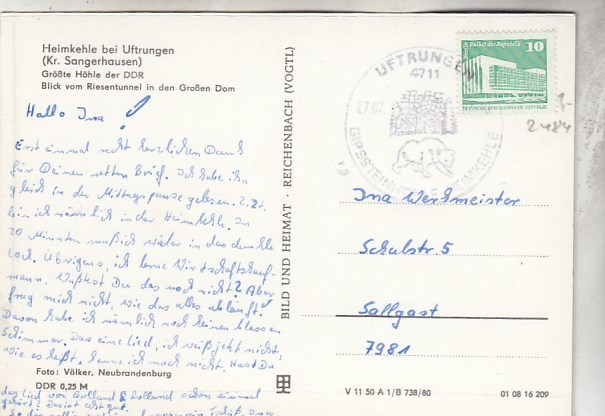 Heimkehle bei Uftrungen
(Kr. Sangerhausen)
Größte Höhle der DDR
Blick vom Riesentunnel in den Großen Dom
Hallo Ina!
Erst einmal recht herzlichen Dank
für Deinen netten Brief. Ich habe ihn
gleich in der Mittagspause gelesen. Z. Zt.
bin ich nämlich in der Heimkehle. In
20 Minuten muß ich wieder in das dunkle
Loch. Übrigens, ich lerne Wirtschaftskauf-
mann. Wußtest Du das noch nicht? Aber
frag mich nicht, wie das alles abläuft.
Davon habe ich nämlich noch keinen blassen
Schimmer. Das eine Lied, ich weiß jetzt nicht,
wie es heißt, kenne ich noch nicht. Hast Du
Foto: Völker, Neubrandenburg
DDR 0,25 M
das Lied von Bolland & Bolland schon einmal
gehört? Das ist echt gut.
BILD UND HEIMAT · REICHENBACH (VOGTL)
UFTRUNGEN
4711
Palast der Republik
10
2484
Ina Werkmeister
Schulstr. 5
Sallgast
7981
V 11 50 A 1/B 738/80
01 08 16 209